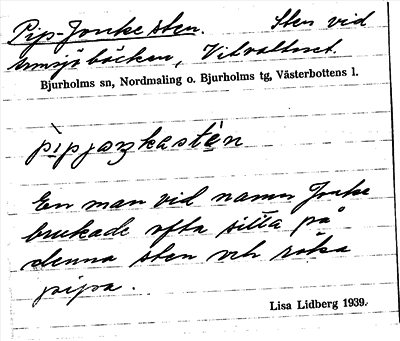 Pip-Jonkesten. Sten vid
Armsjöbäcken, Vitvattnet.
Bjurholms sn, Nordmaling o. Bjurholms tg, Västerbottens l.
pìpjaŋkastèn
En man vid namn Jonke
brukade ofta sitta på
denna sten och röka
pipa.
Lisa Lidberg 1939.